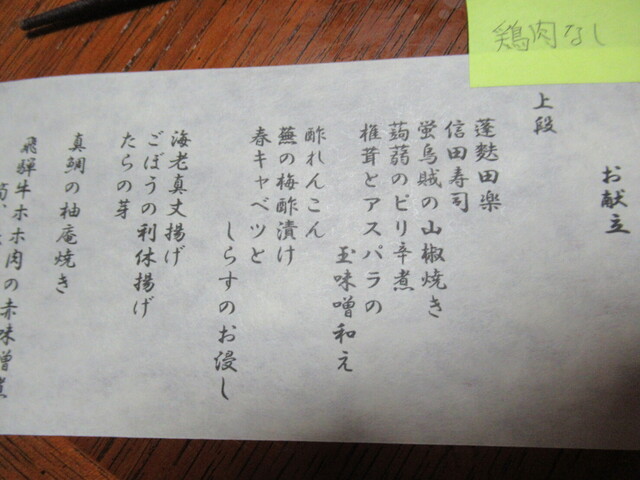 鶏肉なし
お献立
上段
蓬麩田楽
信田寿司
蛍烏賊の山椒焼き
蒟蒻のピリ辛煮
椎茸とアスパラの
玉味噌和え
酢れんこん
蕪の梅酢漬け
春キャベツと
しらすのお浸し
海老真丈揚げ
ごぼうの利休揚げ
たらの芽
真鯛の柚庵焼き
飛騨牛ホホ肉の赤味噌煮